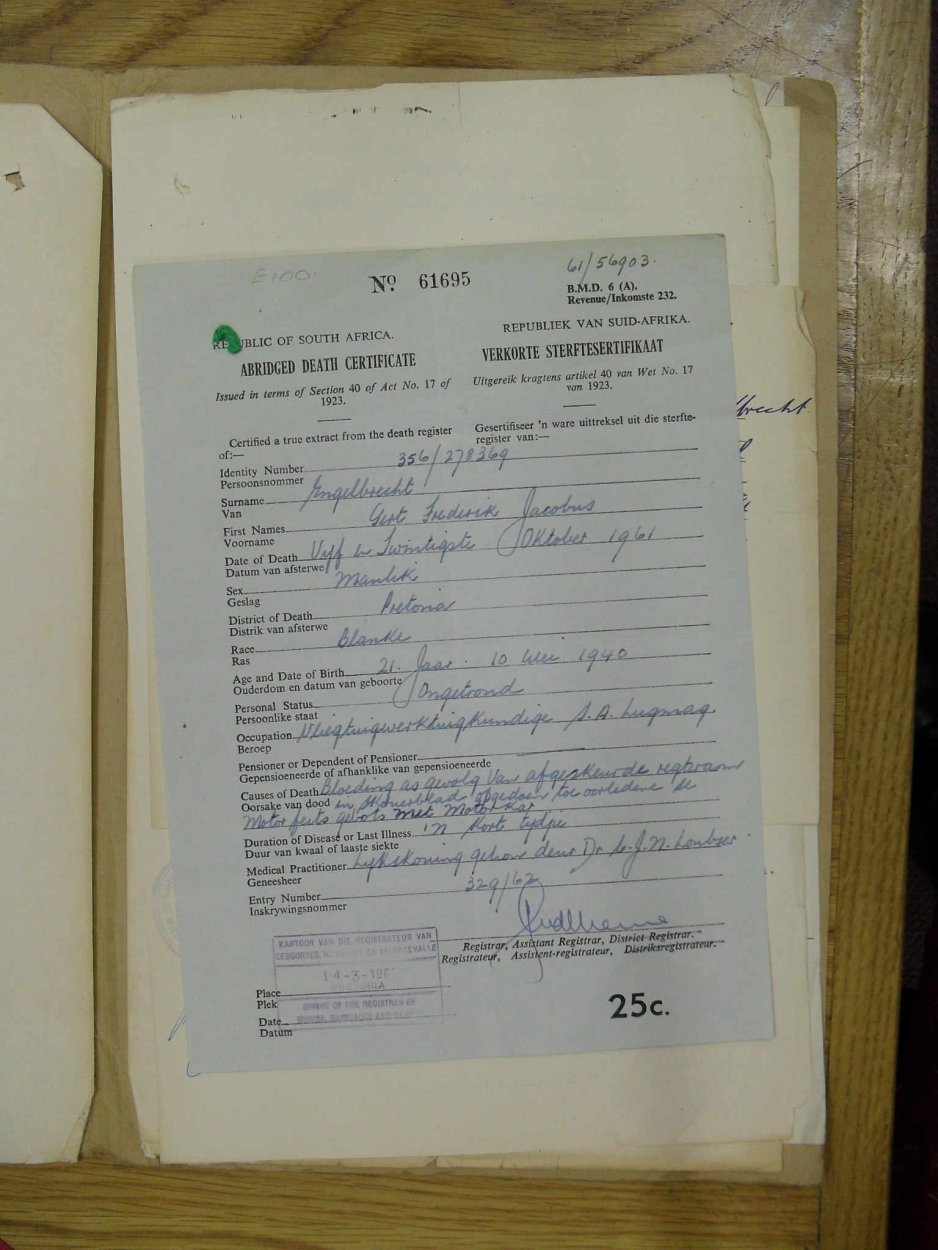 E100.
Nº 61695
61/56903.
B.M.D. 6 (A).
Revenue/Inkomste 232.
REPUBLIC OF SOUTH AFRICA.
ABRIDGED DEATH CERTIFICATE
Issued in terms of Section 40 of Act No. 17 of
1923.
REPUBLIEK VAN SUID-AFRIKA.
VERKORTE STERFTESERTIFIKAAT
Uitgereik kragtens artikel 40 van Wet No. 17
van 1923.
Certified a true extract from the death register
of:—
Gesertifiseer 'n ware uittreksel uit die sterfte-
register van:—
Identity Number 356/278369
Persoonsnommer
Surname Engelbrecht
Van
First Names Gert Frederik Jacobus
Voorname
Date of Death Vyf en Twintigste Oktober 1961
Datum van afsterwe
Sex Manlik
Geslag
District of Death Pretoria
Distrik van afsterwe
Race Blanke
Ras
Age and Date of Birth 21. Jaar. 10 Mei 1940
Ouderdom en datum van geboorte
Personal Status Ongetroud
Persoonlike staat
Occupation Vliegtuigwerktuigkundige S.A. Lugmag.
Beroep
Pensioner or Dependent of Pensioner
Gepensioeneerde of afhanklike van gepensioeneerde
Causes of Death Bloeding as gevolg van afgeskeurde regterarm
Oorsake van dood en skouerblad opgedoen toe oorledene se
Motor fiets gebots met Motor kar
Duration of Disease or Last Illness 'n kort tydjie
Duur van kwaal of laaste siekte
Medical Practitioner Lykskouing gehou deur Dr J.N. Loubser
Geneesheer
Entry Number 329/62
Inskrywingsnommer
Registrar, Assistant Registrar, District Registrar.
Registrateur, Assistent-registrateur, Distriksregistrateur.
KANTOOR VAN DIE REGISTRATEUR VAN
GEBOORTES, HUWELIKE EN STERFGEVALLE
14-3-196
PRETORIA
OFFICE OF THE REGISTRAR OF
BIRTHS, MARRIAGES AND DEATHS
Place
Plek
Date
Datum
25c.
brecht